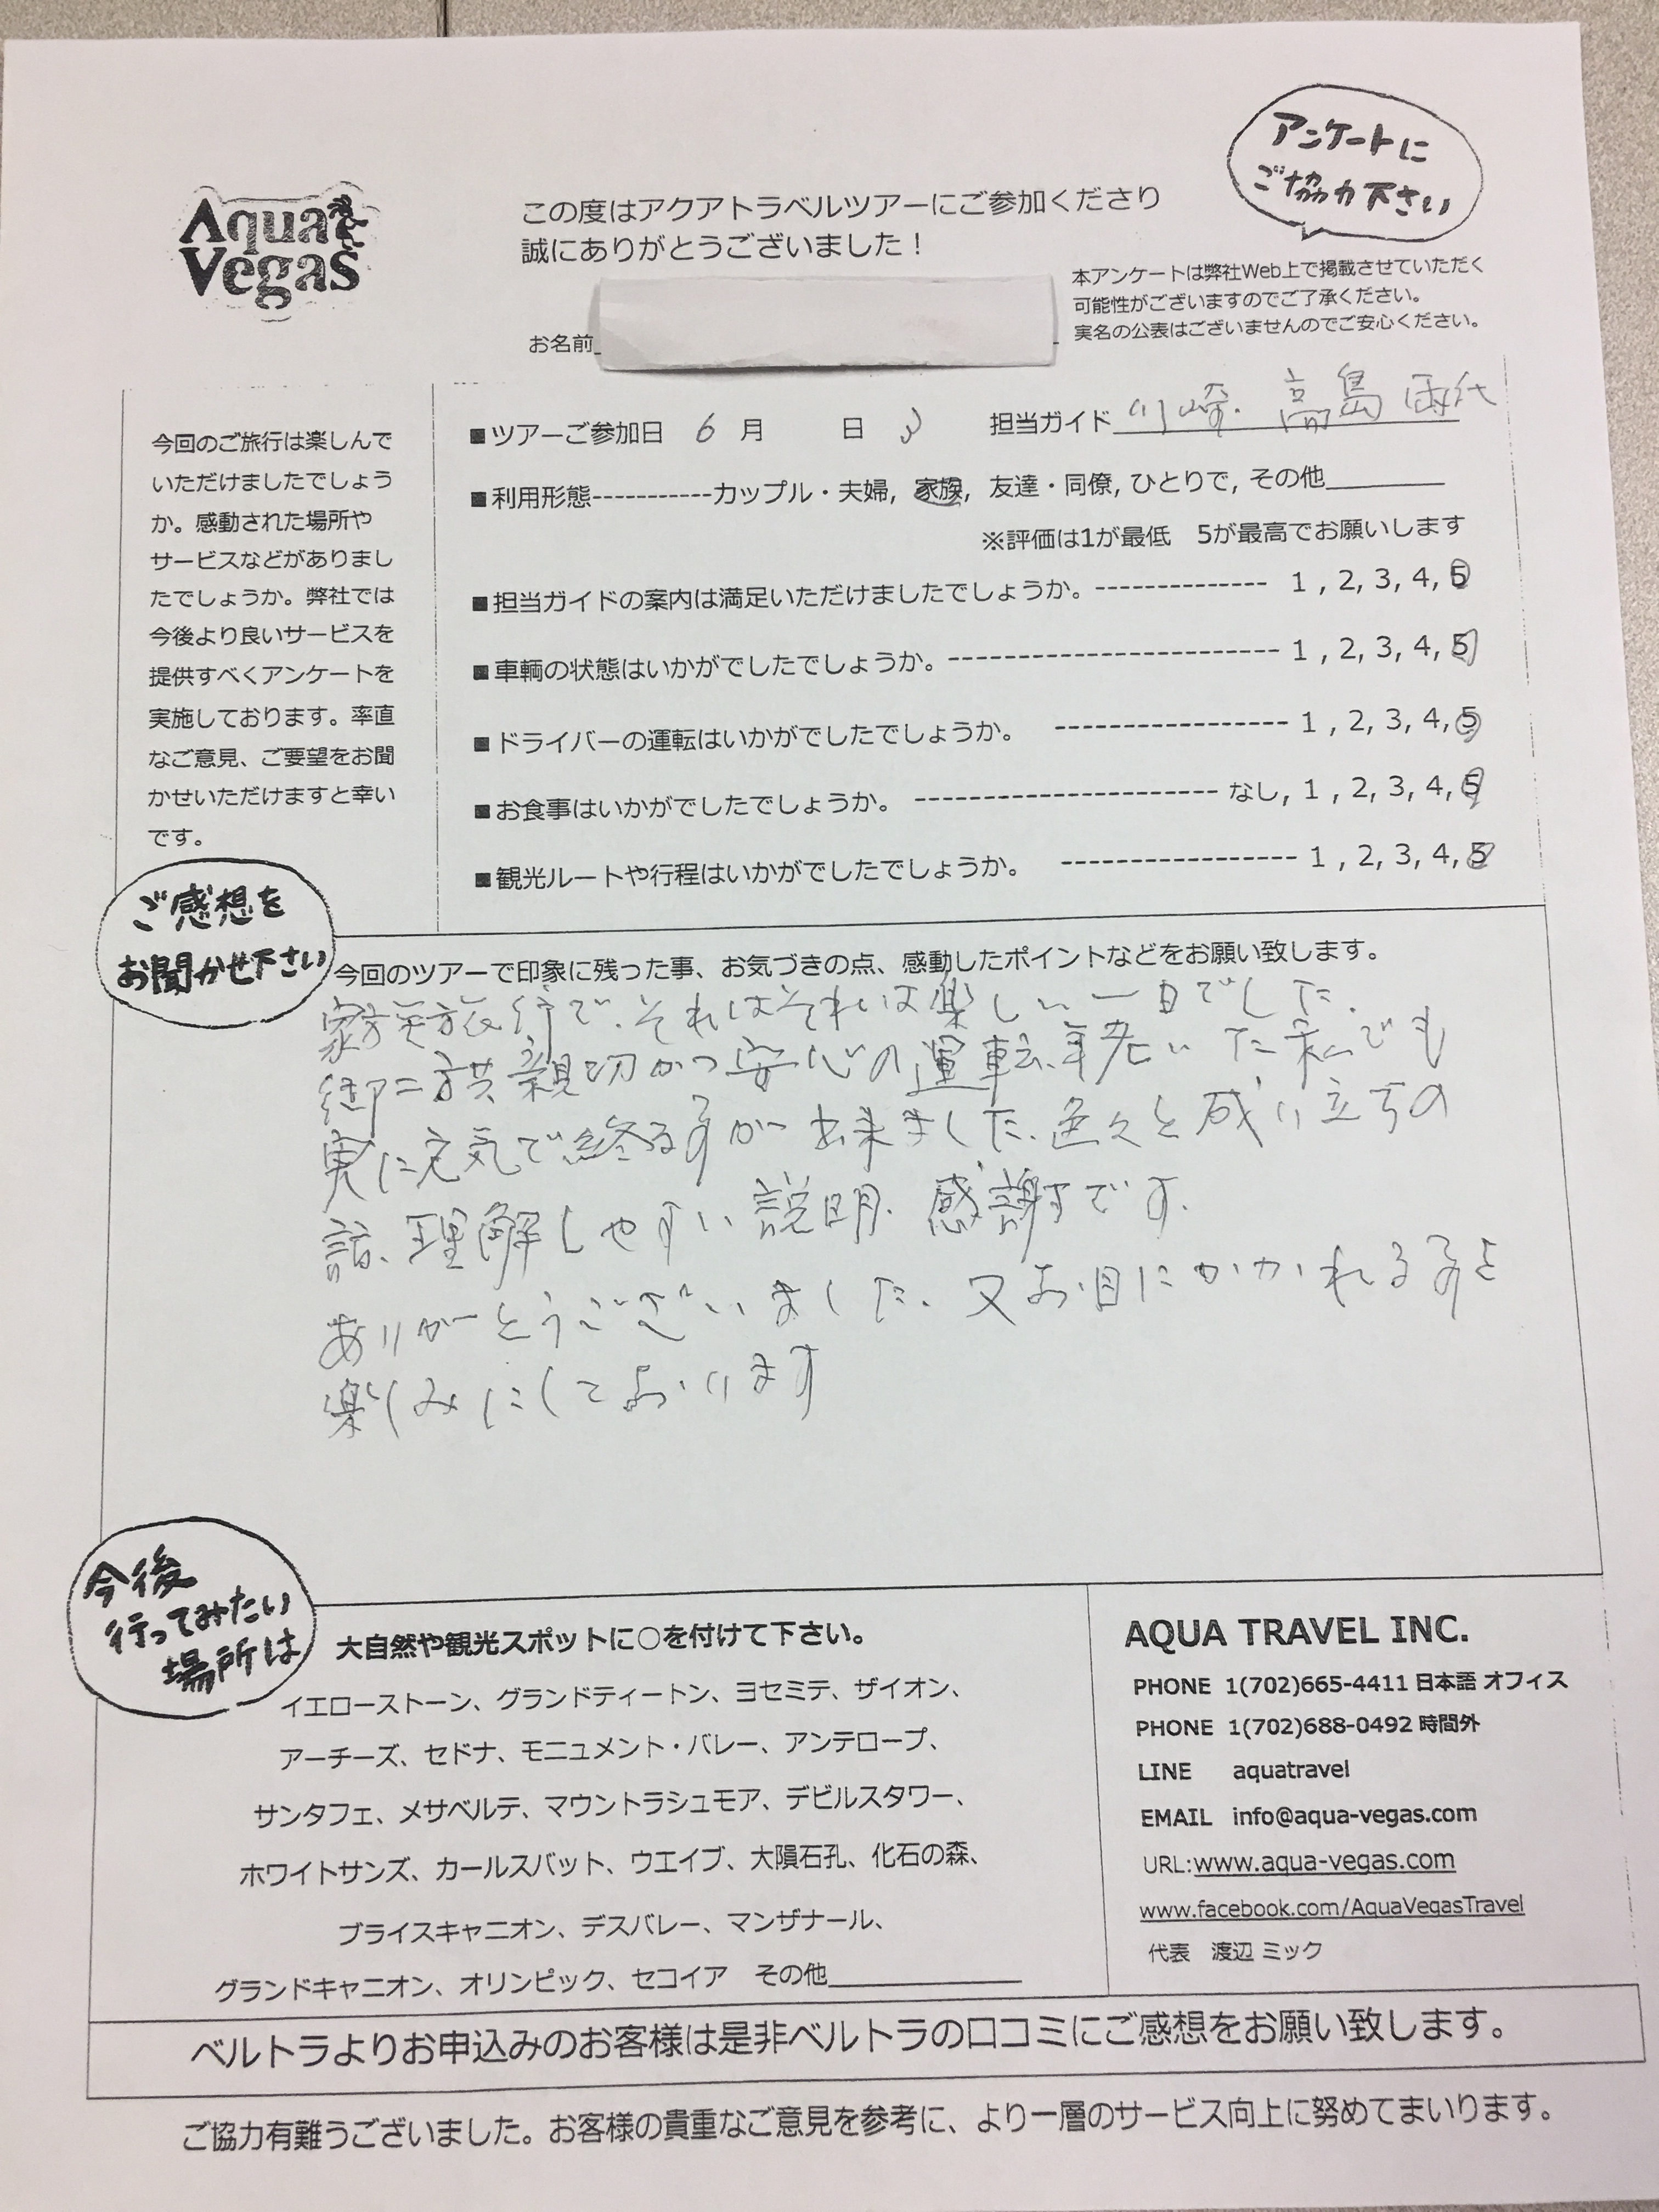 アンケートに
ご協力下さい
Aqua
Vegas
この度はアクアトラベルツアーにご参加くださり
誠にありがとうございました！
本アンケートは弊社Web上で掲載させていただく
可能性がございますのでご了承ください。
実名の公表はございませんのでご安心ください。
お名前
今回のご旅行は楽しんで
いただけましたでしょう
か。感動された場所や
サービスなどがありまし
たでしょうか。弊社では
今後より良いサービスを
提供すべくアンケートを
実施しております。率直
なご意見、ご要望をお聞
かせいただけますと幸い
です。
■ツアーご参加日 6 月 日 3 担当ガイド 川崎. 高島
■利用形態-----------カップル・夫婦, 家族, 友達・同僚, ひとりで, その他
※評価は1が最低 5が最高でお願いします
■担当ガイドの案内は満足いただけましたでしょうか。-------------- 1 , 2, 3, 4, 5
■車輌の状態はいかがでしたでしょうか。--------------------------- 1 , 2, 3, 4, 5
■ドライバーの運転はいかがでしたでしょうか。 ----------------- 1 , 2, 3, 4, 5
■お食事はいかがでしたでしょうか。 ---------------------- なし, 1 , 2, 3, 4, 5
■観光ルートや行程はいかがでしたでしょうか。 ----------------- 1 , 2, 3, 4, 5
ご感想を
お聞かせ下さい
今回のツアーで印象に残った事、お気づきの点、感動したポイントなどをお願い致します。
家族旅行で、それはそれは楽しい一日でした、
御二方共親切かつ安心の運転、年老いた私でも
実に元気で終る事が出来ました、色々と成り立ちの
話、理解しやすい説明、感謝です、
ありがとうございました、又お目にかかれる事を
楽しみにしております
今後
行ってみたい
場所は
大自然や観光スポットに○を付けて下さい。
イエローストーン、グランドティートン、ヨセミテ、ザイオン、
アーチーズ、セドナ、モニュメント・バレー、アンテロープ、
サンタフェ、メサベルテ、マウントラシュモア、デビルスタワー、
ホワイトサンズ、カールスバット、ウエイブ、大隕石孔、化石の森、
ブライスキャニオン、デスバレー、マンザナール、
グランドキャニオン、オリンピック、セコイア その他
AQUA TRAVEL INC.
PHONE 1(702)665-4411 日本語 オフィス
PHONE 1(702)688-0492 時間外
LINE aquatravel
EMAIL info@aqua-vegas.com
URL:www.aqua-vegas.com
www.facebook.com/AquaVegasTravel
代表 渡辺 ミック
ベルトラよりお申込みのお客様は是非ベルトラの口コミにご感想をお願い致します。
ご協力有難うございました。お客様の貴重なご意見を参考に、より一層のサービス向上に努めてまいります。